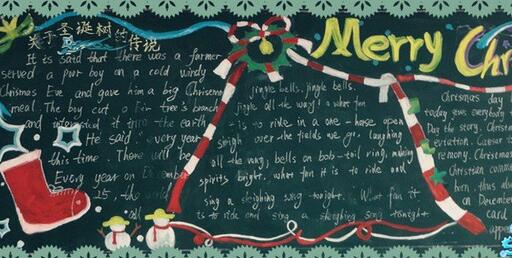 关于圣诞树的传说
Merry Chr
It is said that there was a farmer
served a poor boy on a cold windy
Chrismas Eve and gave him a big Chrismas
meal. The boy cut a Fir tree's branch
and it into the earth
He said. very year
this time. There will be
Every year on December
25. the
jingle bells. jingle bells.
jingle all the way! o what fun
is to ride in a one - horse open
sleigh over the fields we go. laughing
all the way, bells on bob-tail ring, making
spirits bright. what fun it is to ride and
sing a sleighing song tonight. What fun it
is to ride and sing a sleighing song tonight.
Christmas day
today give everybody
Day the story. Christmas
Caesar
remony. Christmas
Christian
born. thus
on December
card
appea